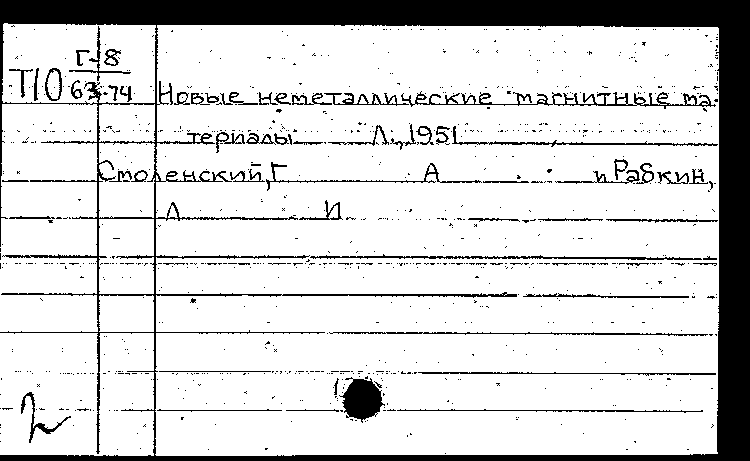 Г-8
Т10 63-74 Новые неметаллические магнитные ма-
териалы Л., 1951
Смоленский, Г А и Рабкин,
Л И